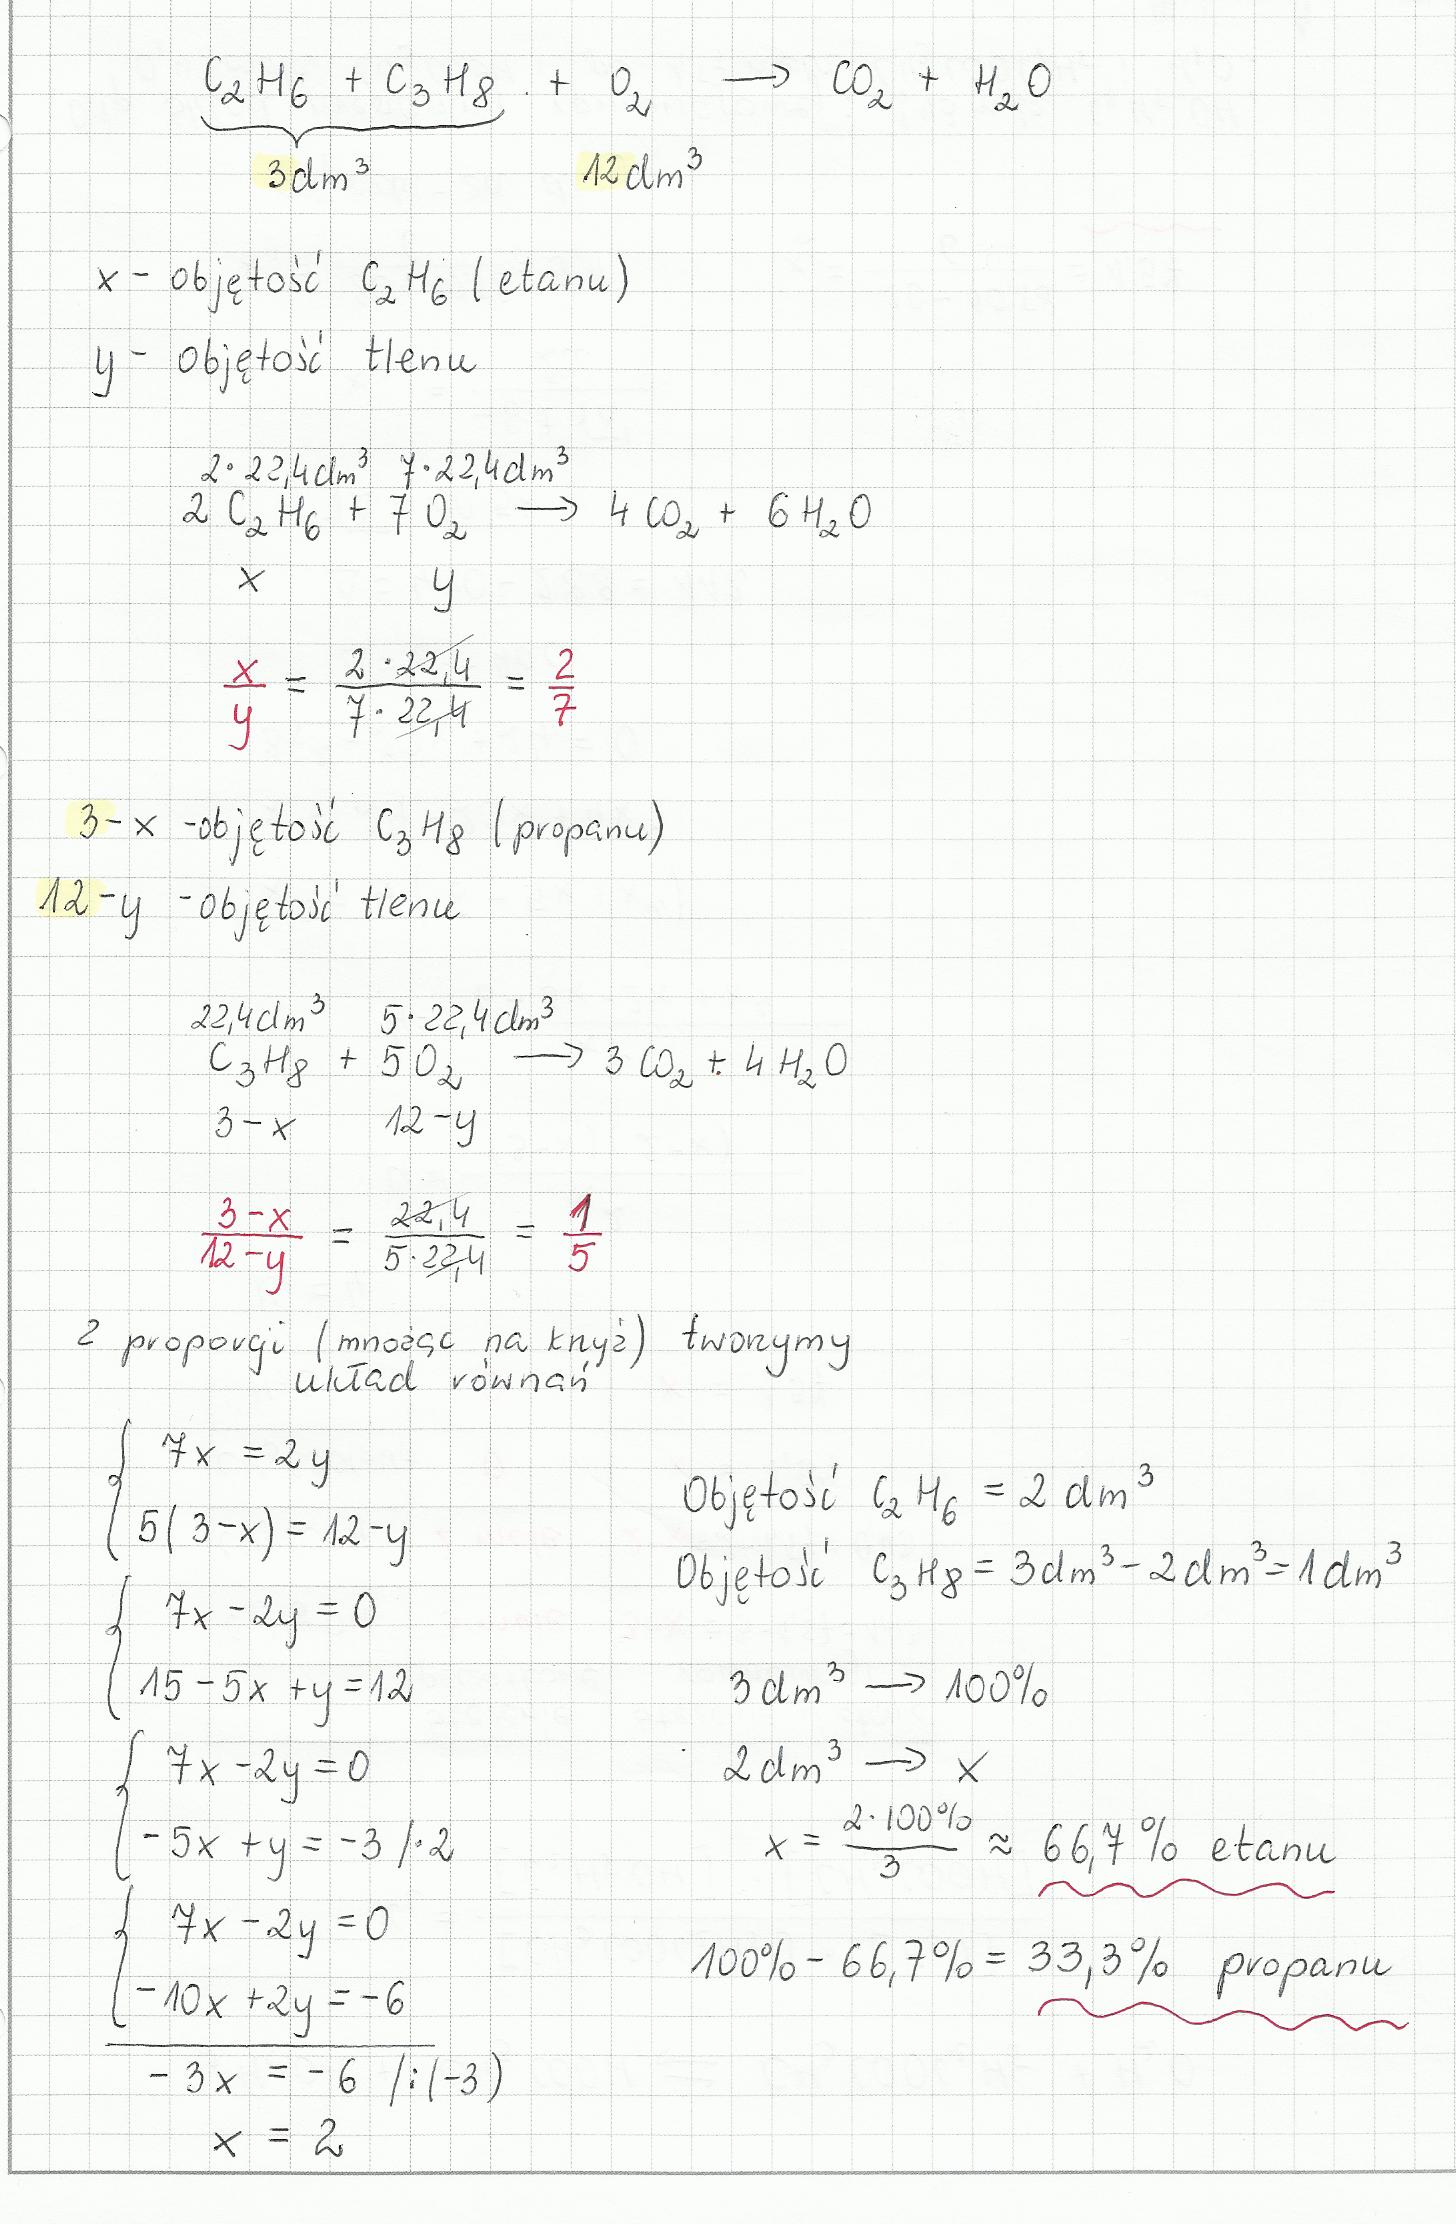 C₂H₆ + C₃H₈ + O₂ → CO₂ + H₂O
3dm³ 12dm³
x - objętość C₂H₆ (etanu)
y - objętość tlenu
2·22,4dm³ 7·22,4dm³
2 C₂H₆ + 7 O₂ → 4 CO₂ + 6 H₂O
x y
x/y = 2·22,4/7·22,4 = 2/7
3-x - objętość C₃H₈ (propanu)
12-y - objętość tlenu
22,4dm³ 5·22,4dm³
C₃H₈ + 5O₂ → 3 CO₂ + 4 H₂O
3-x 12-y
3-x/12-y = 22,4/5·22,4 = 1/5
z proporcji (mnożąc na krzyż) tworzymy
układ równań
7x = 2y
5(3-x) = 12-y
7x - 2y = 0
15 - 5x + y = 12
7x - 2y = 0
-5x + y = -3 /·2
7x - 2y = 0
-10x + 2y = -6
-3x = -6 /:(-3)
x = 2
Objętość C₂H₆ = 2 dm³
Objętość C₃H₈ = 3dm³ - 2dm³ = 1dm³
3dm³ → 100%
2dm³ → x
x = 2·100%/3 ≈ 66,7% etanu
100% - 66,7% = 33,3% propanu